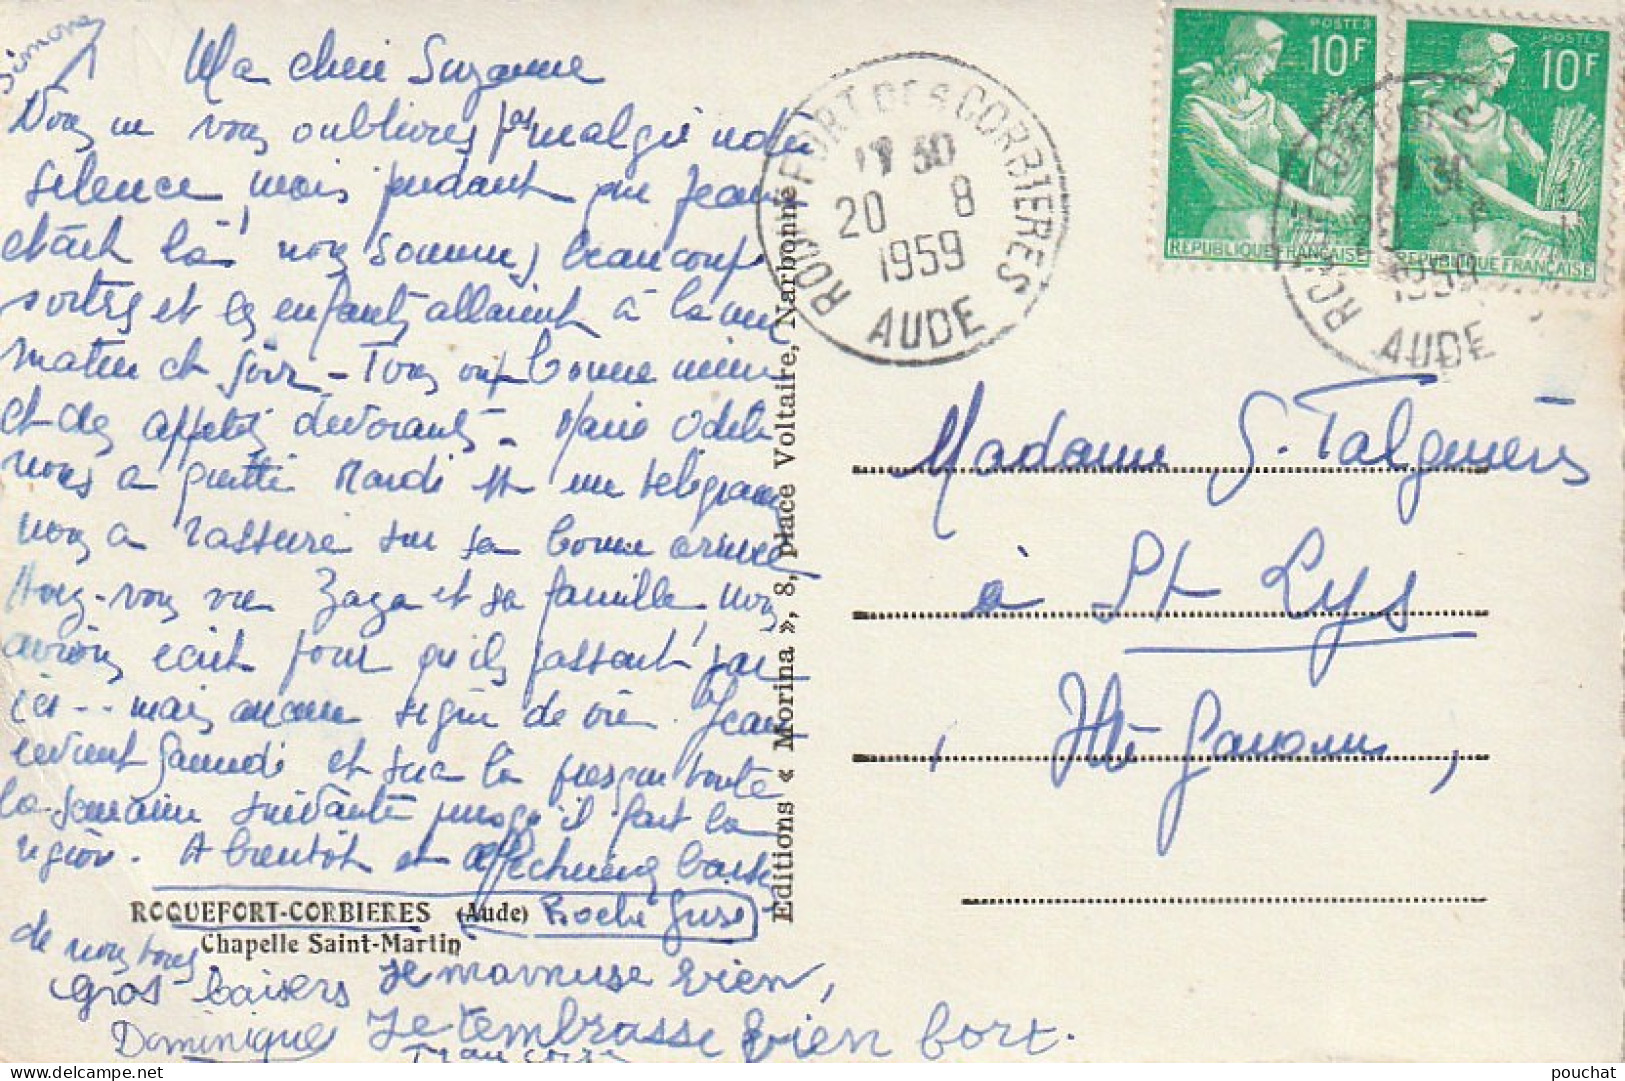 Simone
Ma chère Suzanne
Vous ne nous oublierez pas malgré notre
silence, mais pendant que Jean
était là nous sommes beaucoup
sortis et les enfants allaient à la mer
matin et soir - Tous ont bonne mine
et des appétits dévorants - Marie Odile
nous a quitté Mardi et un télégramme
nous a rassuré sur sa bonne arrivée
Avez-vous vu Zaza et sa famille, nous
avions écrit pour qu'ils passent par
ici - - mais aucun signe de vie. Jean
revient Samedi et sera là presque toute
la semaine suivante puisqu'il fait la
région. A bientôt et affectueux baisers
de nous tous
ROQUEFORT-CORBIERES (Aude)
Chapelle Saint-Martin
Gros baisers
Dominique
Je m'amuse bien,
Je t'embrasse bien fort.
Françoise
Editions « Morina », 8, place Voltaire, Narbonne
ROQUEFORT DES CORBIERES
30
20 8
1959
AUDE
POSTES
10F
REPUBLIQUE FRANÇAISE
POSTES
10F
REPUBLIQUE FRANÇAISE
1959
AUDE
Madame S. Falguières
à St Lys
Hte Garonne,
pouchat